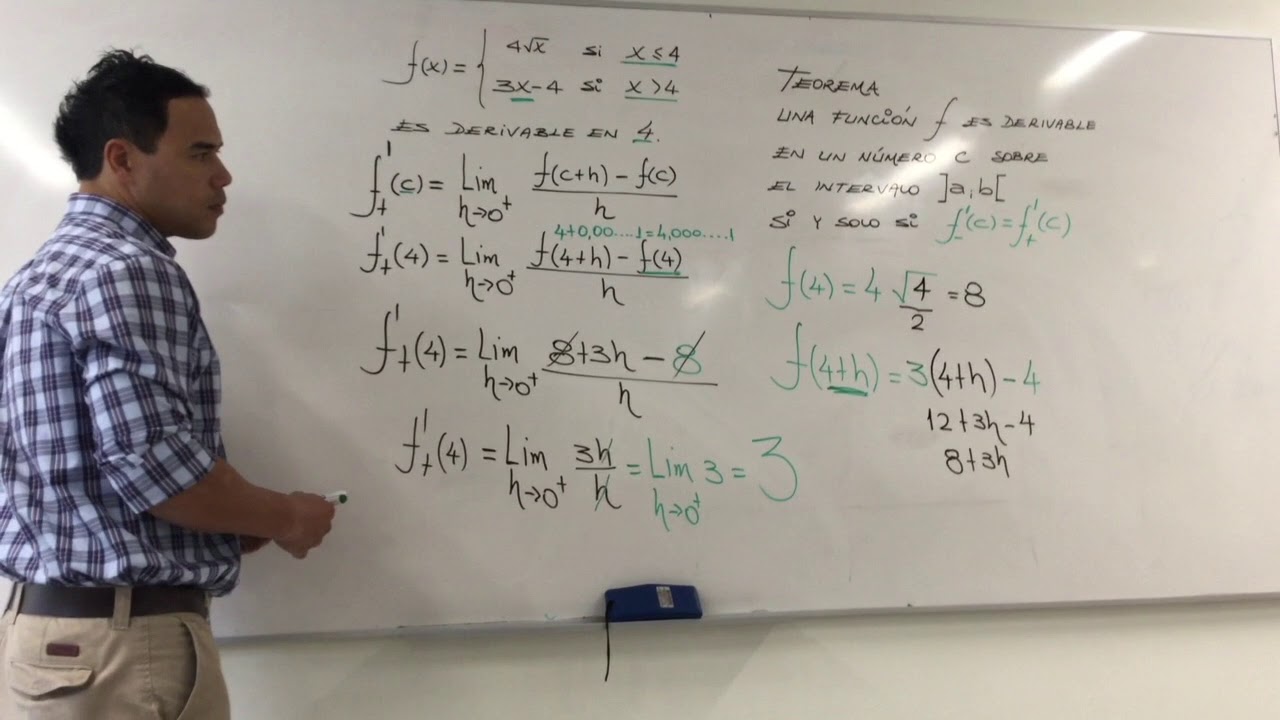 f(x) = { 4√x si x ≤ 4
3x-4 si x > 4
ES DERIVABLE EN 4.
f'₊(c) = Lim h→0⁺ (f(c+h) - f(c)) / h
4+0,00....1=4,000....1
f'₊(4) = Lim h→0⁺ (f(4+h) - f(4)) / h
f'₊(4) = Lim h→0⁺ (8+3h - 8) / h
f'₊(4) = Lim h→0⁺ 3h/h = Lim h→0⁺ 3 = 3
TEOREMA
UNA FUNCIÓN f ES DERIVABLE
EN UN NÚMERO C SOBRE
EL INTERVALO ]a,b[
Si Y SOLO Si f'₋(c) = f'₊(c)
f(4) = 4 √4 = 8
2
f(4+h) = 3(4+h) - 4
12+3h-4
8+3h